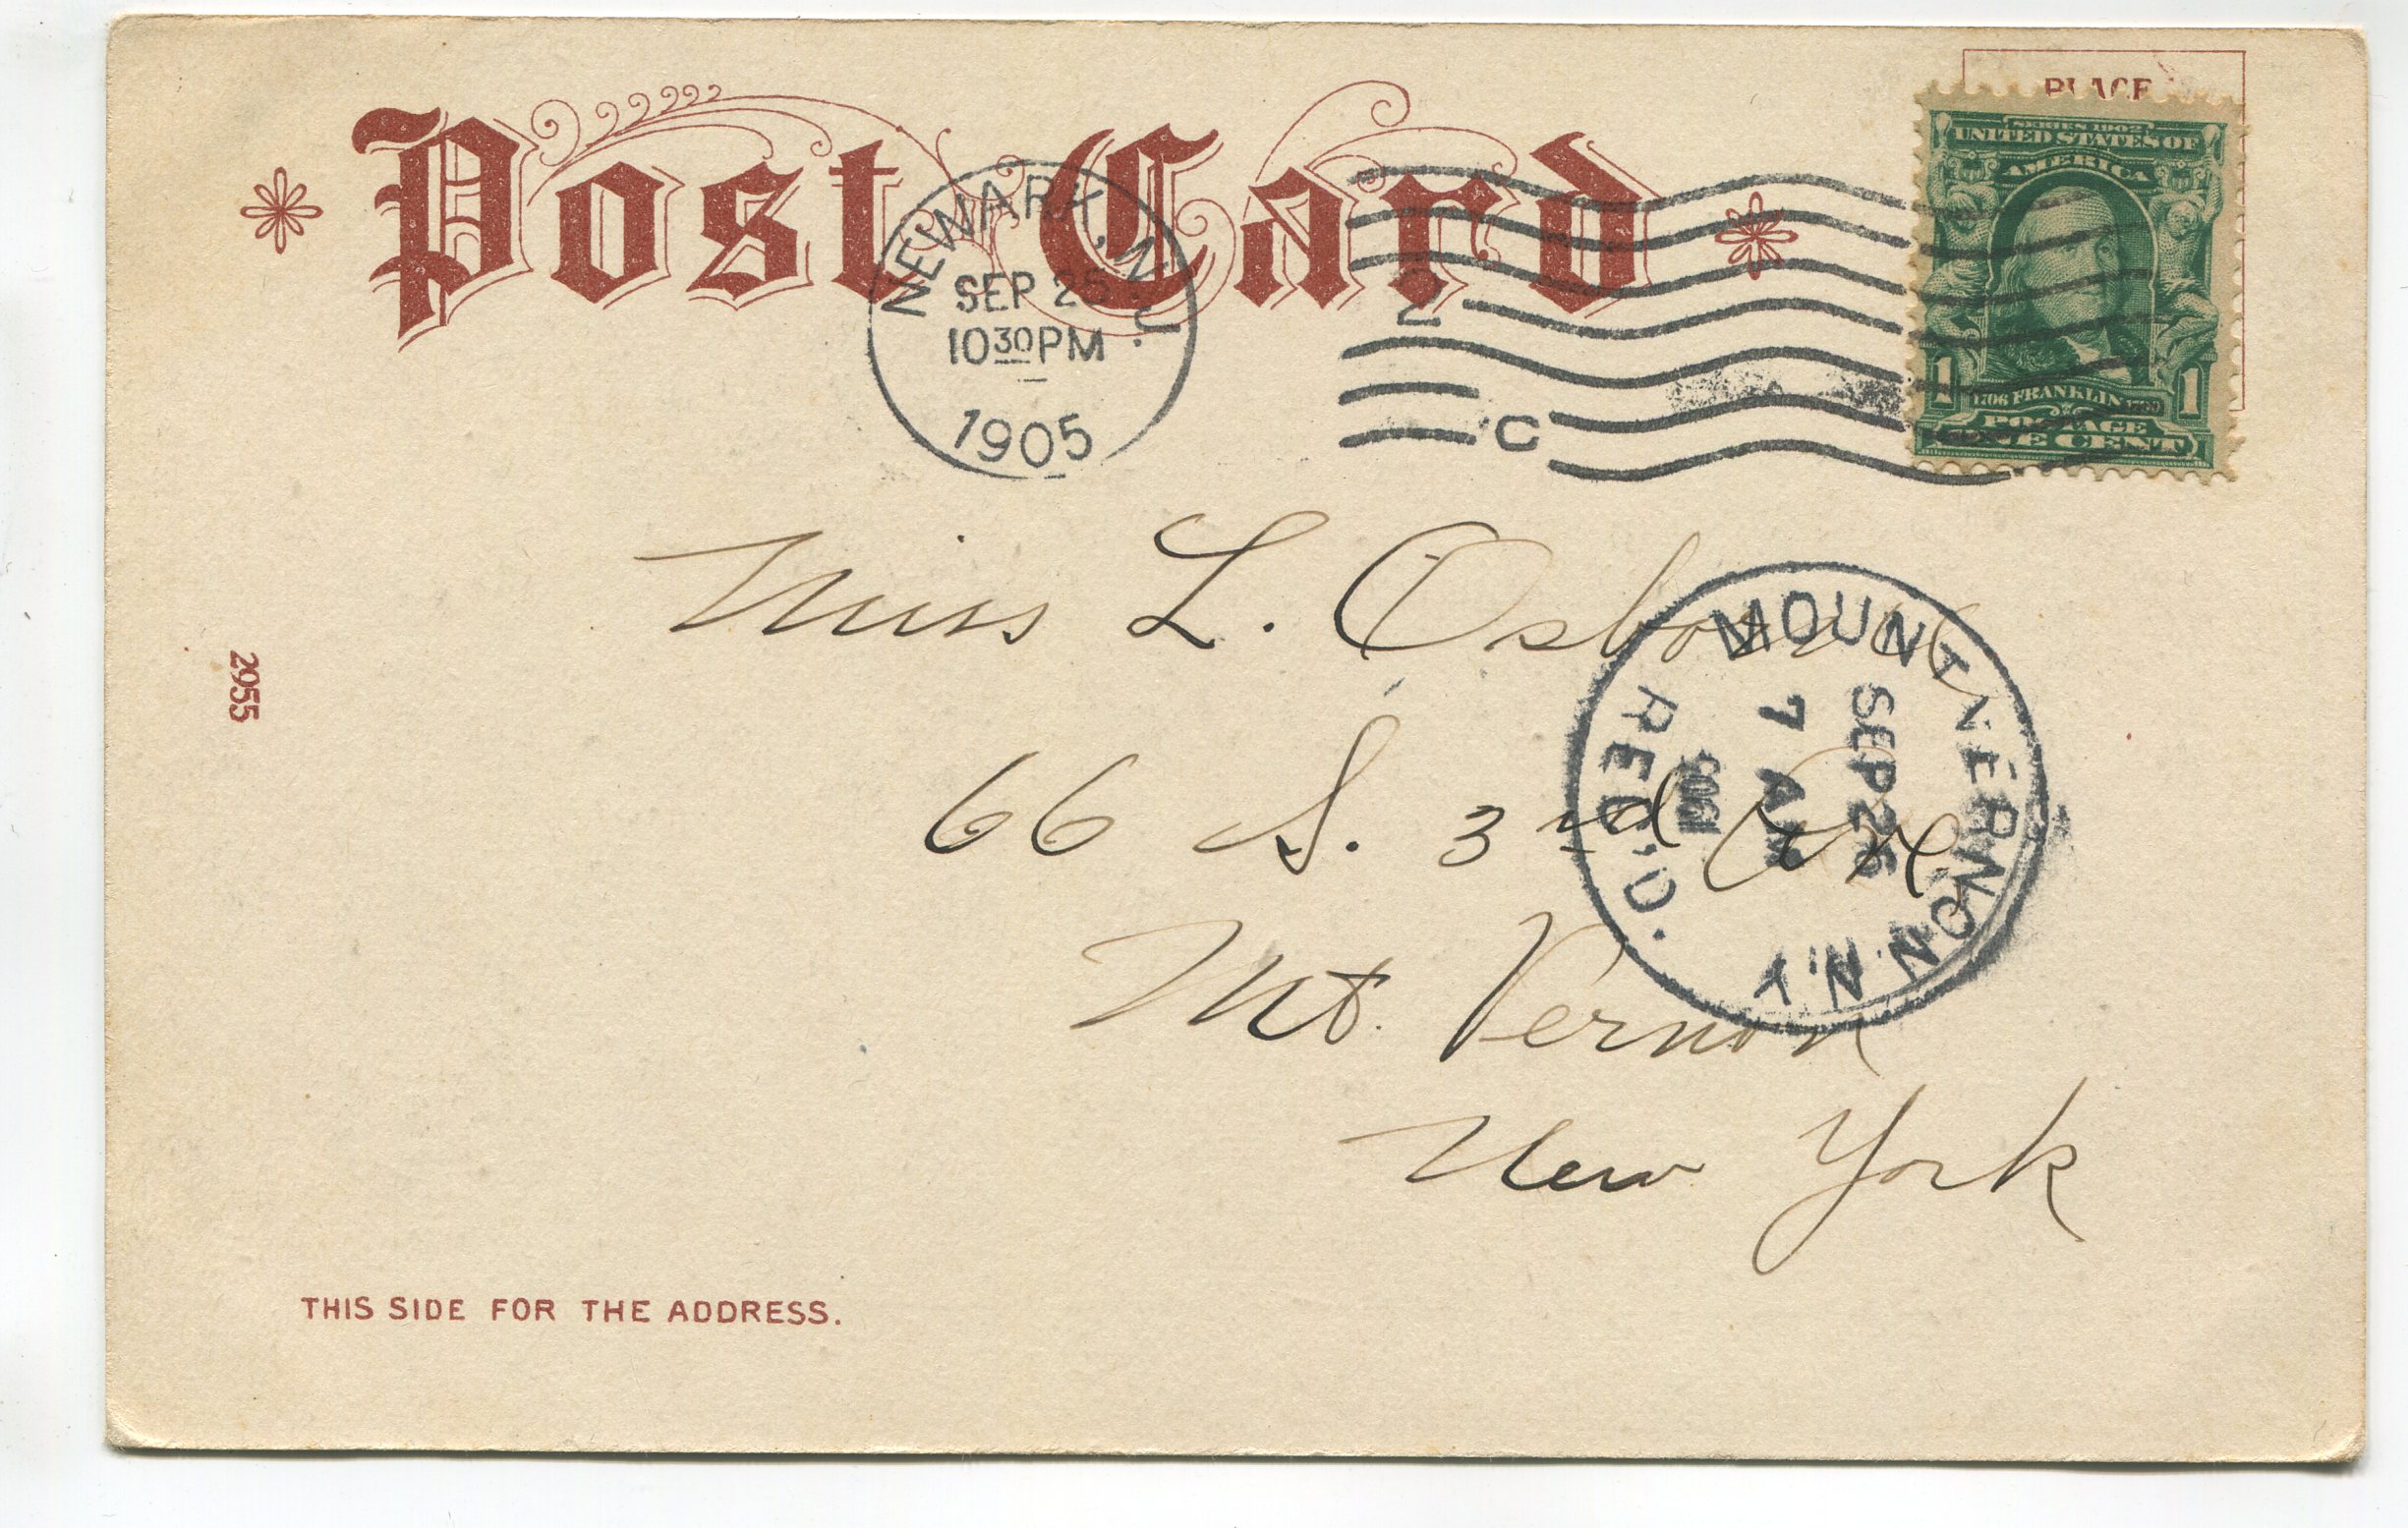 Post Card
PLACE
SERIES 1902
UNITED STATES OF
AMERICA
1 1706 FRANKLIN 1790 1
POSTAGE
ONE CENT
NEWARK, N.J.
SEP 25
10 30 PM
1905
2
C
Miss L. Osborne
66 S. 3rd Ave,
Mt. Vernon
New York
MOUNT VERNON. N.Y
SEP 26
7 AM
1905
REC'D.
2955
THIS SIDE FOR THE ADDRESS.